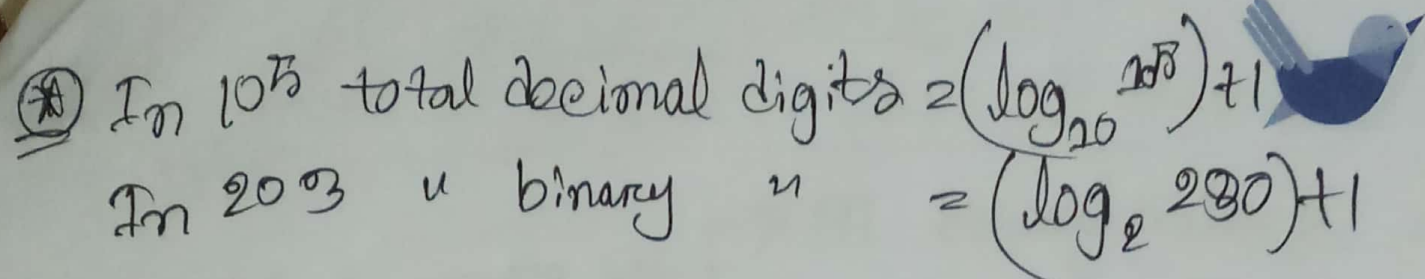 ⊛ In 10⁵ total decimal digits = (log₁₀ 10⁵) + 1
In 203 " binary " = (log₂ 230) + 1